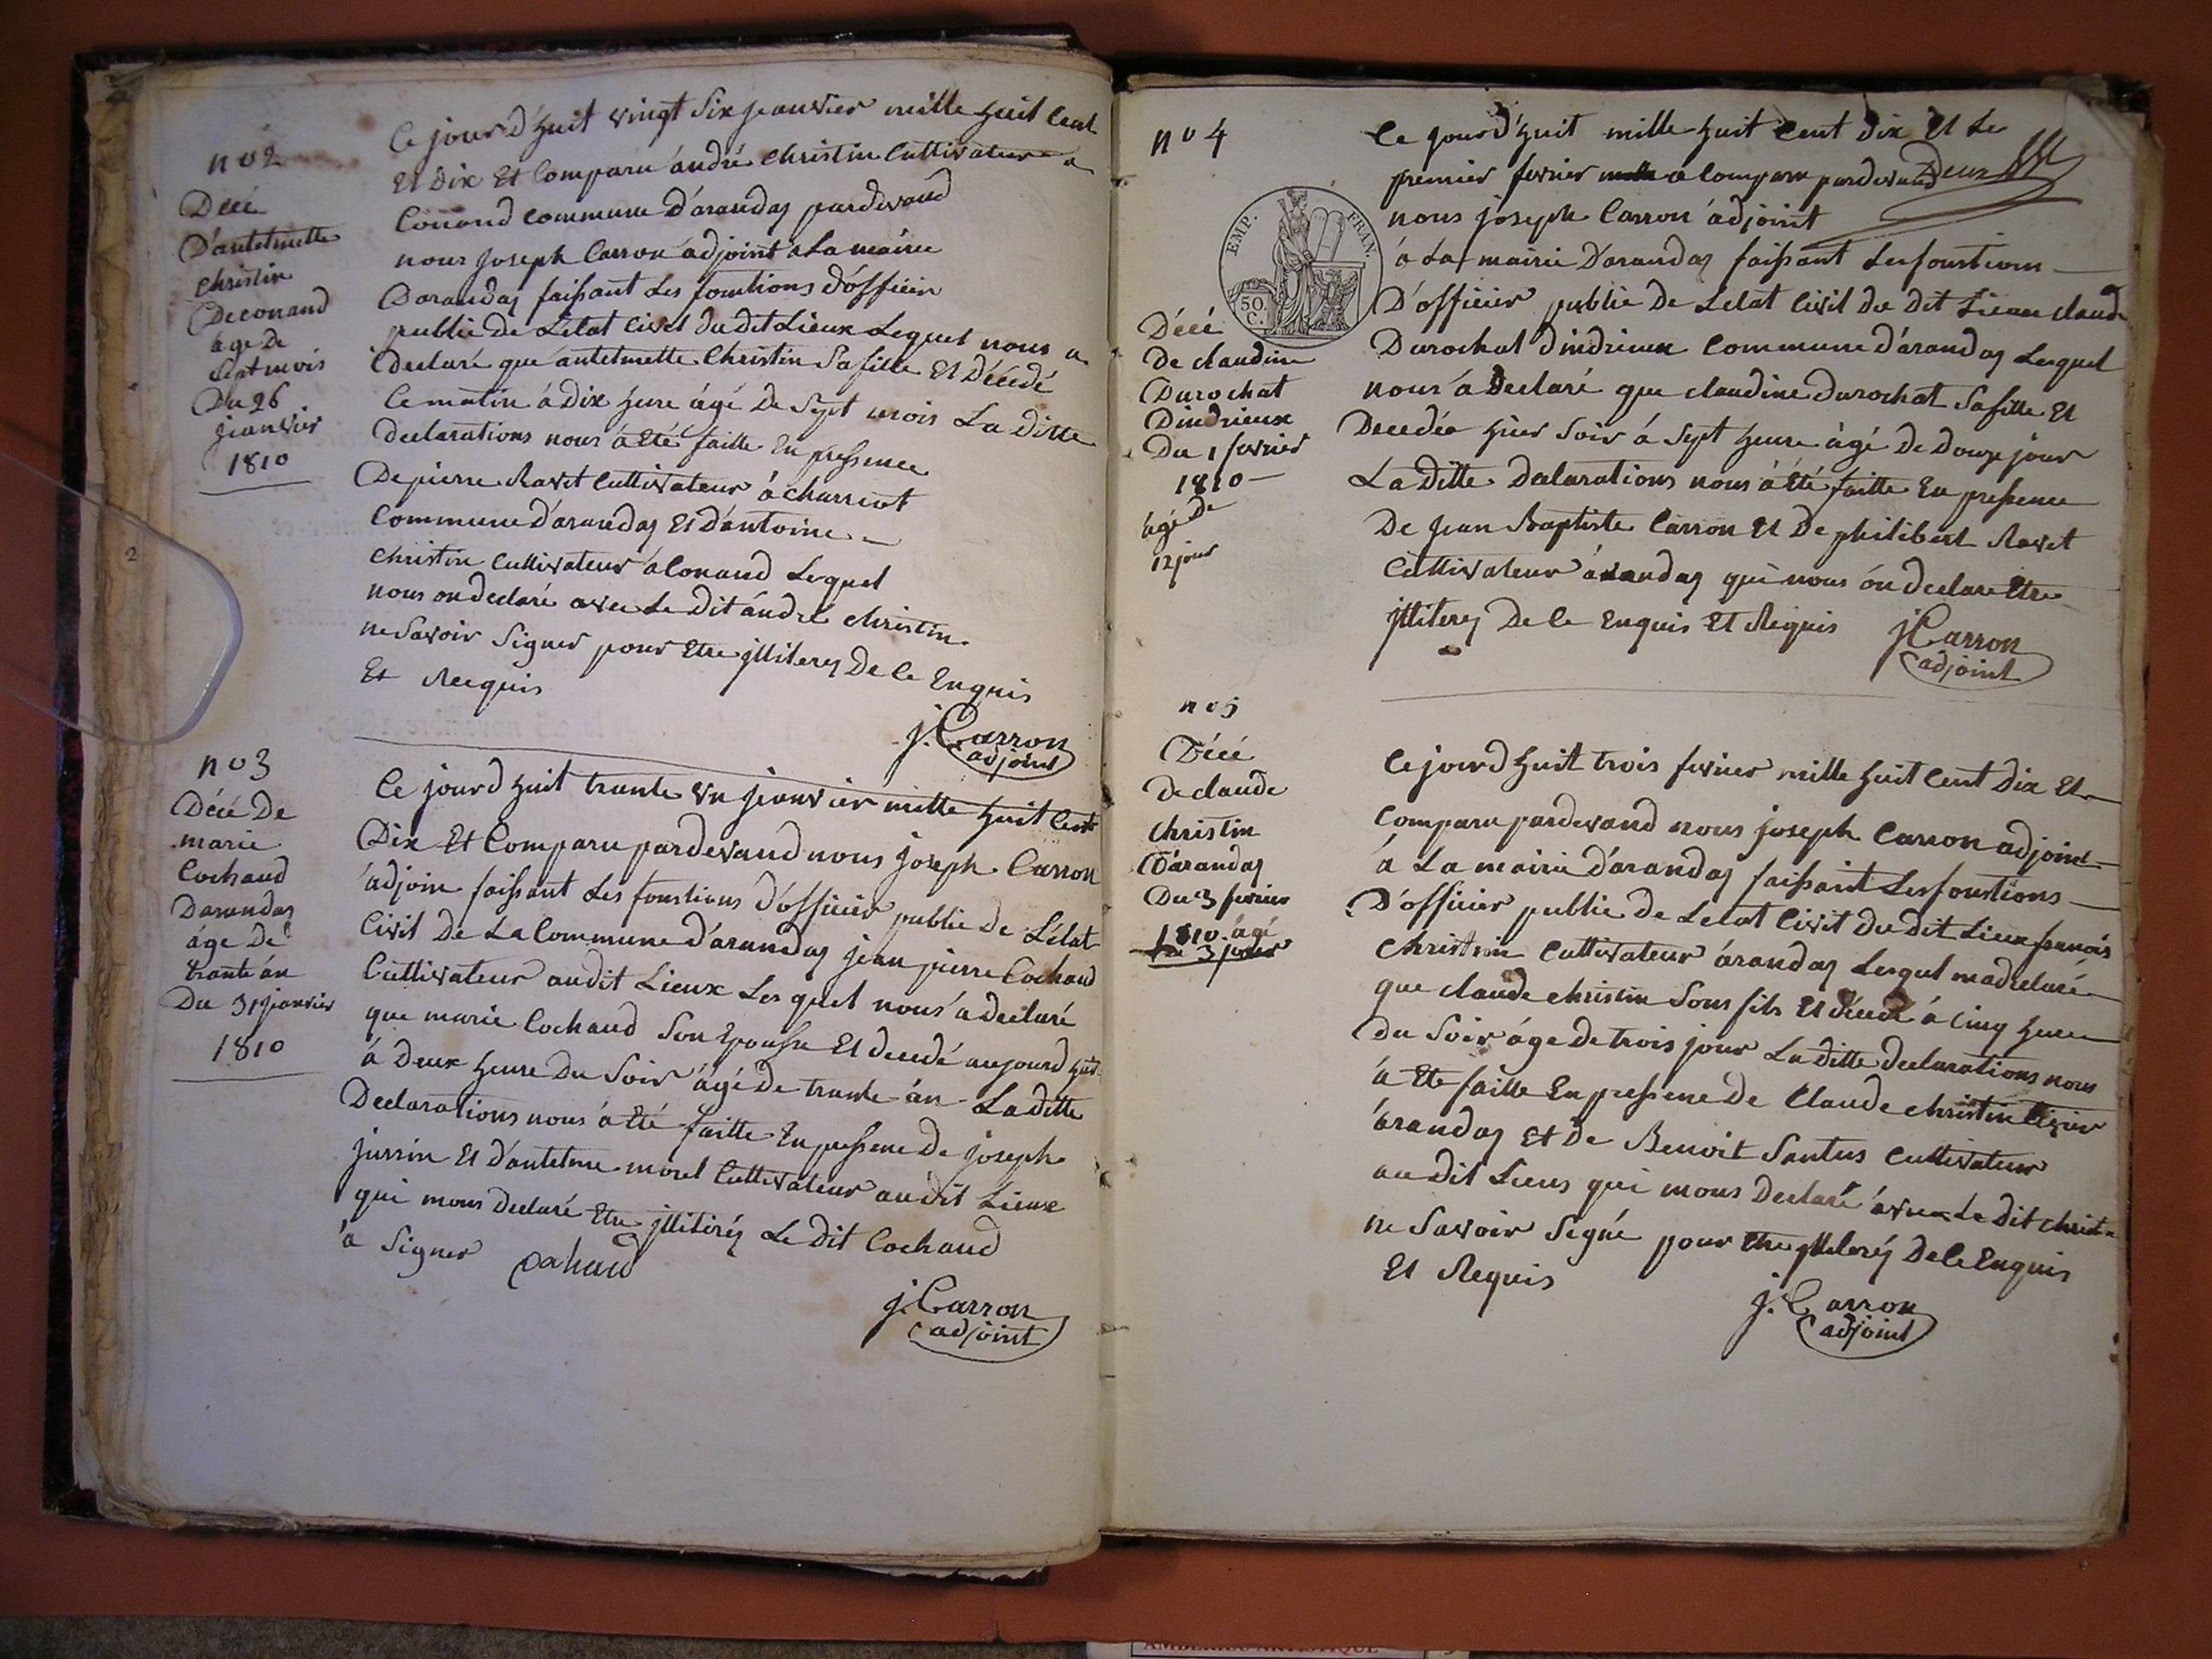 n° 2
Décé
D'antelmette
christin
De conand
âge De
Sept mois
Du 26
jeanvier
1810
Ce jourd'huit vingt Six jeanvier mille huit Cent
Et Dix Et Comparu andré christin Cultivateur a
Conand commune D'arandas pardevand
nous joseph Carron adjoint a La mairie
Darandas faissant Les fonctions d'officier
public De L'etat Civil du dit Lieux Lequel nous a
Declaré que antelmette Christin Sa fille Et Décédé
Ce matin à Dix heure âgé De Sept mois La Ditte
Declarations nous à Eté faitte En pressence
De pierre Ravet Cultivateur à charriot
Commune d'arandas Et D'antoine
christin Cultivateur à Conand Lequel
nous on declaré avec Le Dit andré christin
ne Savoir Signer pour Etre jlliterez De Ce Enquis
Et Requis
j. Carron
adjoint
n° 3
Décé De
marie
Cochaud
Darandas
âge De
trante ân
Du 31 jeanvier
1810
Ce jourd huit trante un jeanvier mille huit Cent
Dix Et Comparu pardevand nous joseph Carron
adjoin faissant Les fonctions D'officier public De L'état
Civil De La Commune d'arandas jean pierre Cochaud
Cultivateur audit Lieux Les quel nous a declaré
que marie Cochaud Son Epousse Et decedé aujourd huit
à Deux heure Du Soir âgé de trante ân La ditte
Declarations nous à Eté faitte En pressene De joseph
jurrin Et D'antelme morel Cultivateur au dit Lieux
qui mons Declaré Etre jllitiréz Le Dit Cochaud
à Signer Cochaud
j. Carron
adjoint
2
n° 4
EMP. FRAN.
50 C.
Décé
De claudine
Durochat
Dindrieux
Du 1 fevrier
1810
âgé de
12 jour
Ce jourd'huit mille huit Cent Dix Et Le
premier fevrier a Comparu pardevand Deux
nous joseph Carron adjoint
à La mairie D'arandas faissant Les fonctions
D'officier public De L'etat Civil du dit Lieux claude
Durochat dindrieux Commune d'arandas Lequel
nous à Declaré que claudine Durochat Sa fille Et
Decedée hier Soir à Sept heure âgé De Douze jour
La Ditte Declarations nous à Eté faitte En pressence
De jean Baptiste Carron Et De philibert Ravet
Cultivateur arandas qui nous ôn declare Etre
jlliterez De Ce Enquis Et Requis
j Carron
adjoint
n° 5
Décé
De claude
christin
D'arandas
Du 3 fevrier
1810 âgé
De 3 jours
Ce jourd huit trois fevrier mille huit Cent Dix Et
Comparu pardevand nous joseph Carron adjoint
à La mairie D'arandas faissant Les fonctions
D'officier public de L'etat Civil du dit Lieux francois
christin Cultivateur ârandas Lequel ma declaré
que claude christin Sons fils Et décedé à Cinq heure
du Soir âge De trois jour La ditte declarations nous
à Ete faitte En pressene De Claude christin
ârandas Et De Benoit Santus Cultivateur
au dit Lieus qui mons Declaré avec Le Dit christin
ne Savoir Signé pour Etre jlleteréz De Ce Enquis
Et Requis
j. Carron
adjoint
AMBERIEU ARTISTIQUE